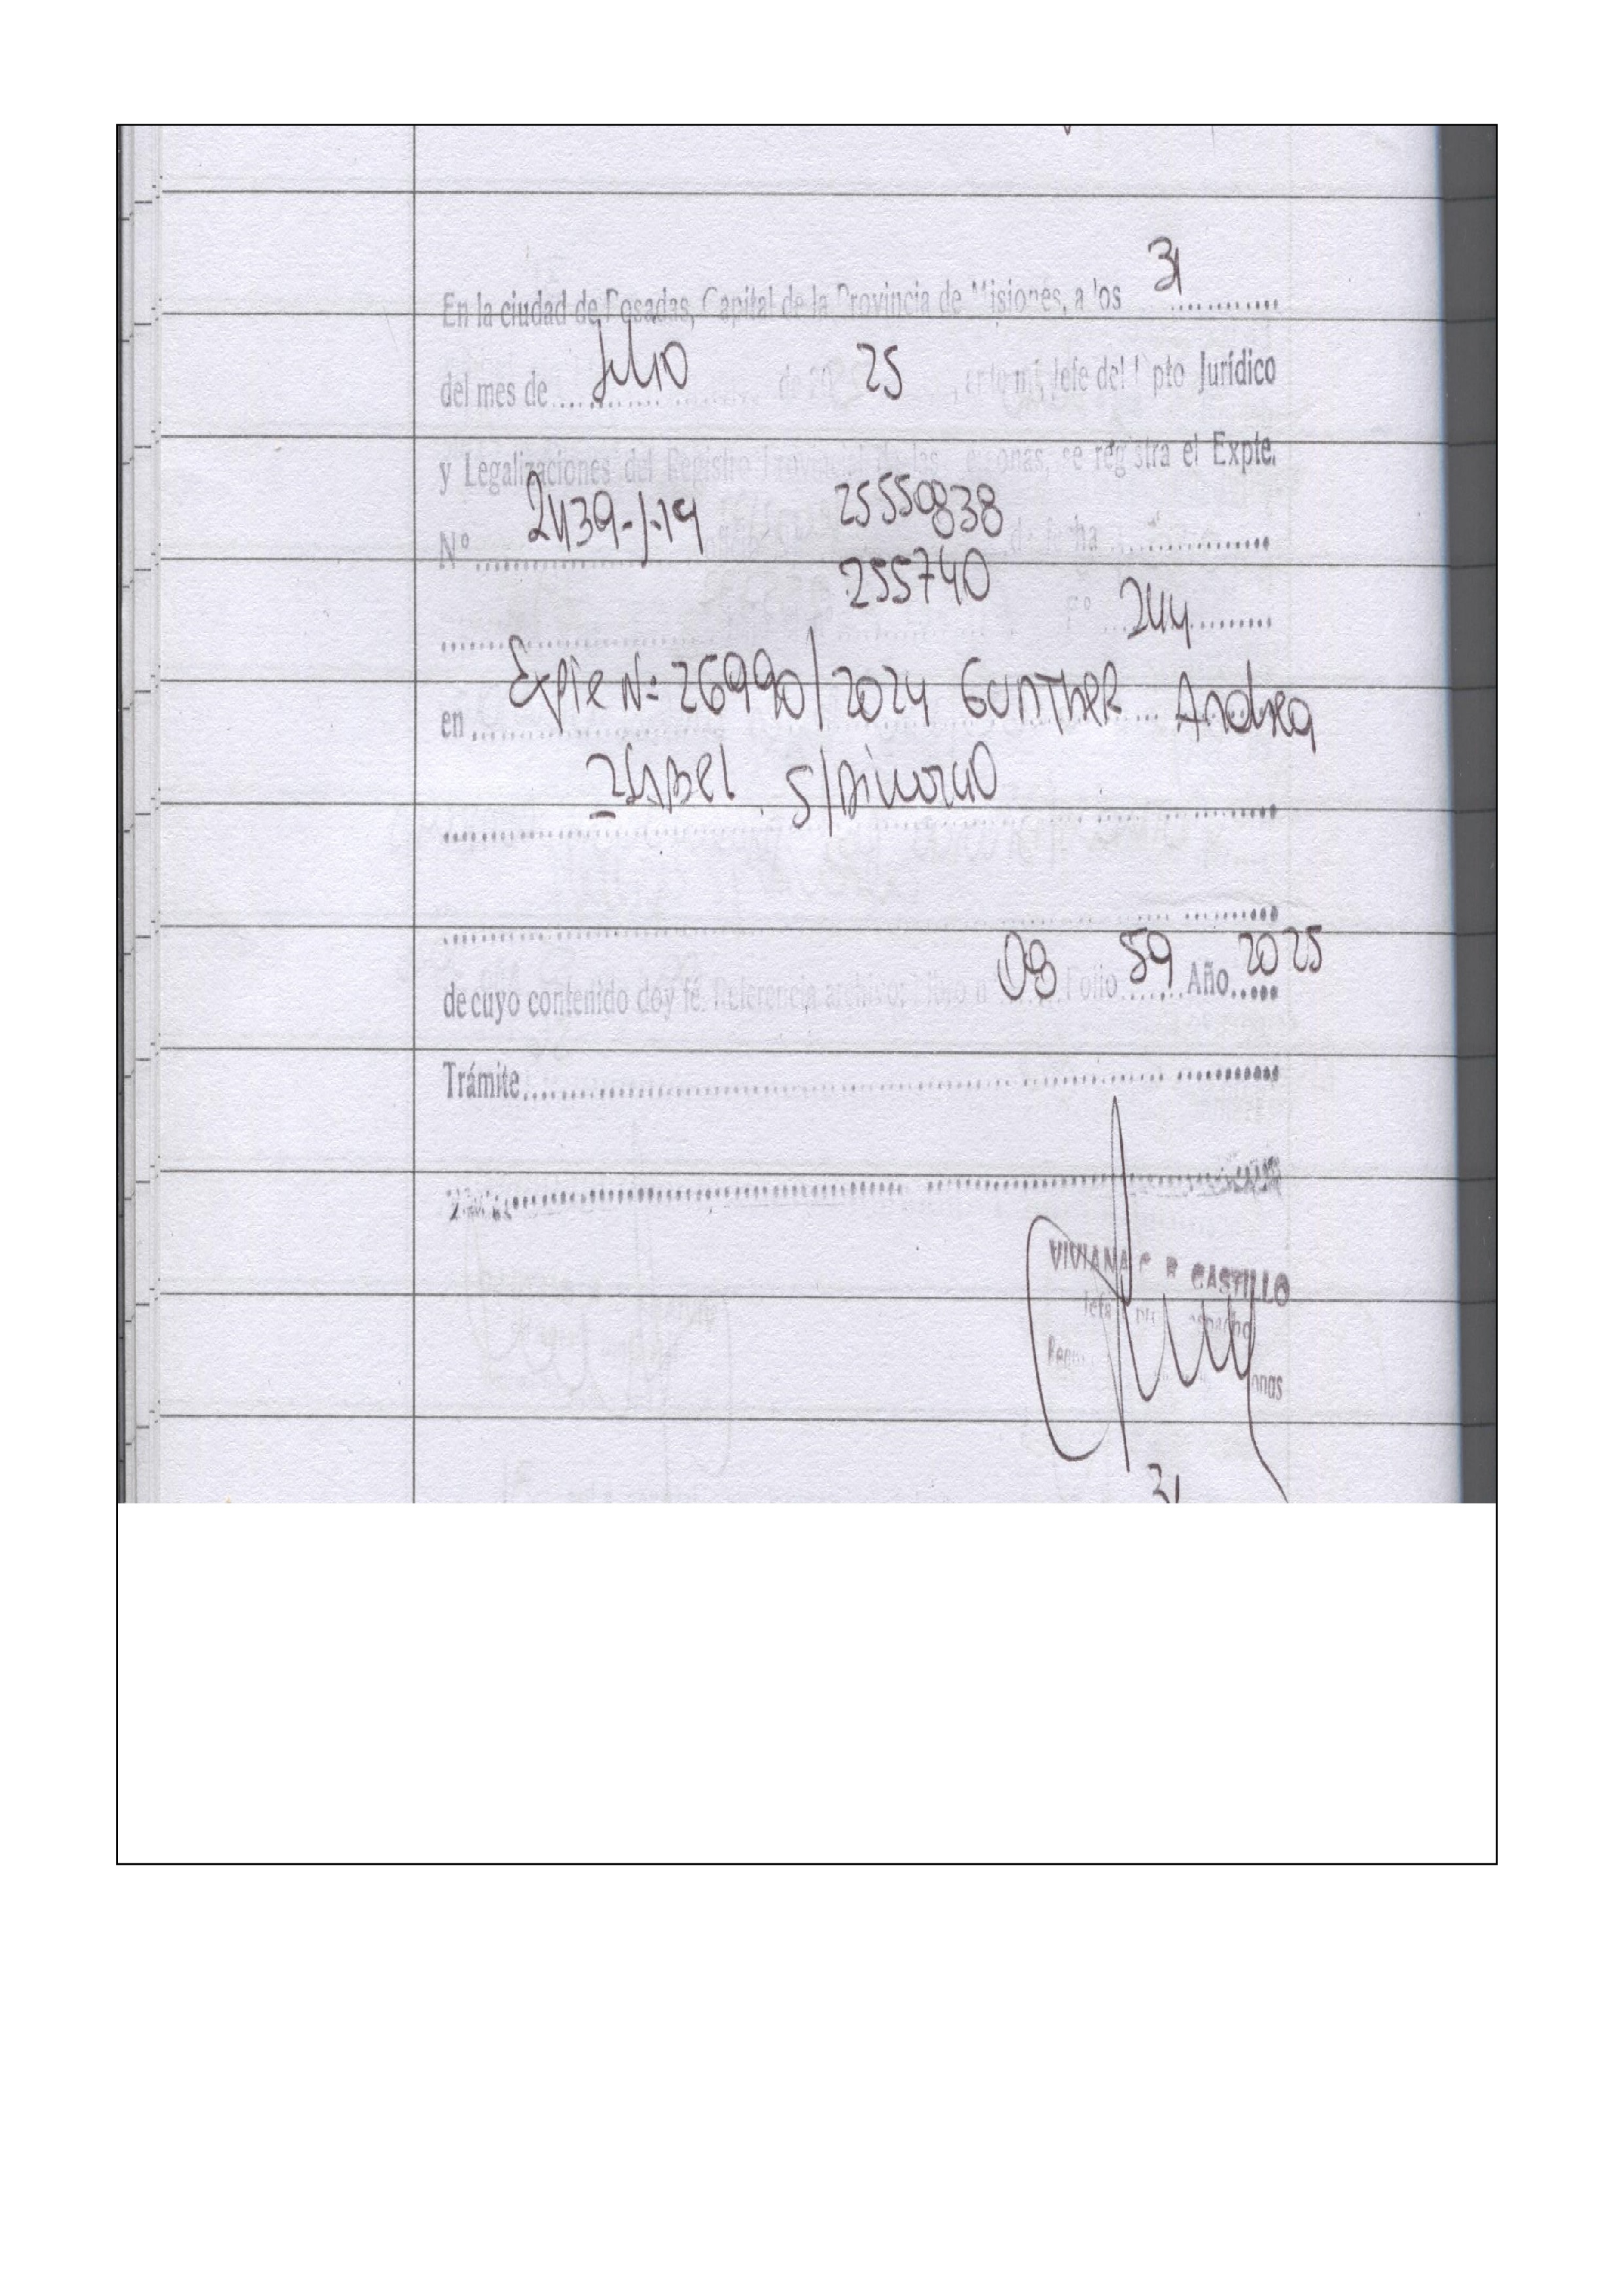 En la ciudad de Posadas, Capital de la Provincia de Misiones, a los 31
del mes de Julio de 20 25, ante mi, Jefe del Dpto Jurídico
y Legalizaciones del Registro Provincial de las Personas, se registra el Expte.
Nº 2439-J-19 25550838 de fecha
255740 Fº 244
en Expte Nº 26990/2024 GUNTHER Andrea
S/Divorcio
de cuyo contenido doy fé. Referencia archivo: Libro n 08 Folio 59 Año 2025
Trámite
VIVIANA CASTILLO
31